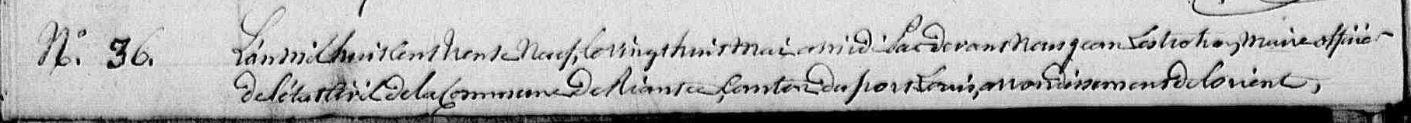 N.° 36. L'an mil huit cent trente Neuf, le vingt huit Mai a midi Pardevant Nous jean Maire officier
de l'état Civil de la Commune de Riantec, Canton du port Louis, arrondissement de lorient,